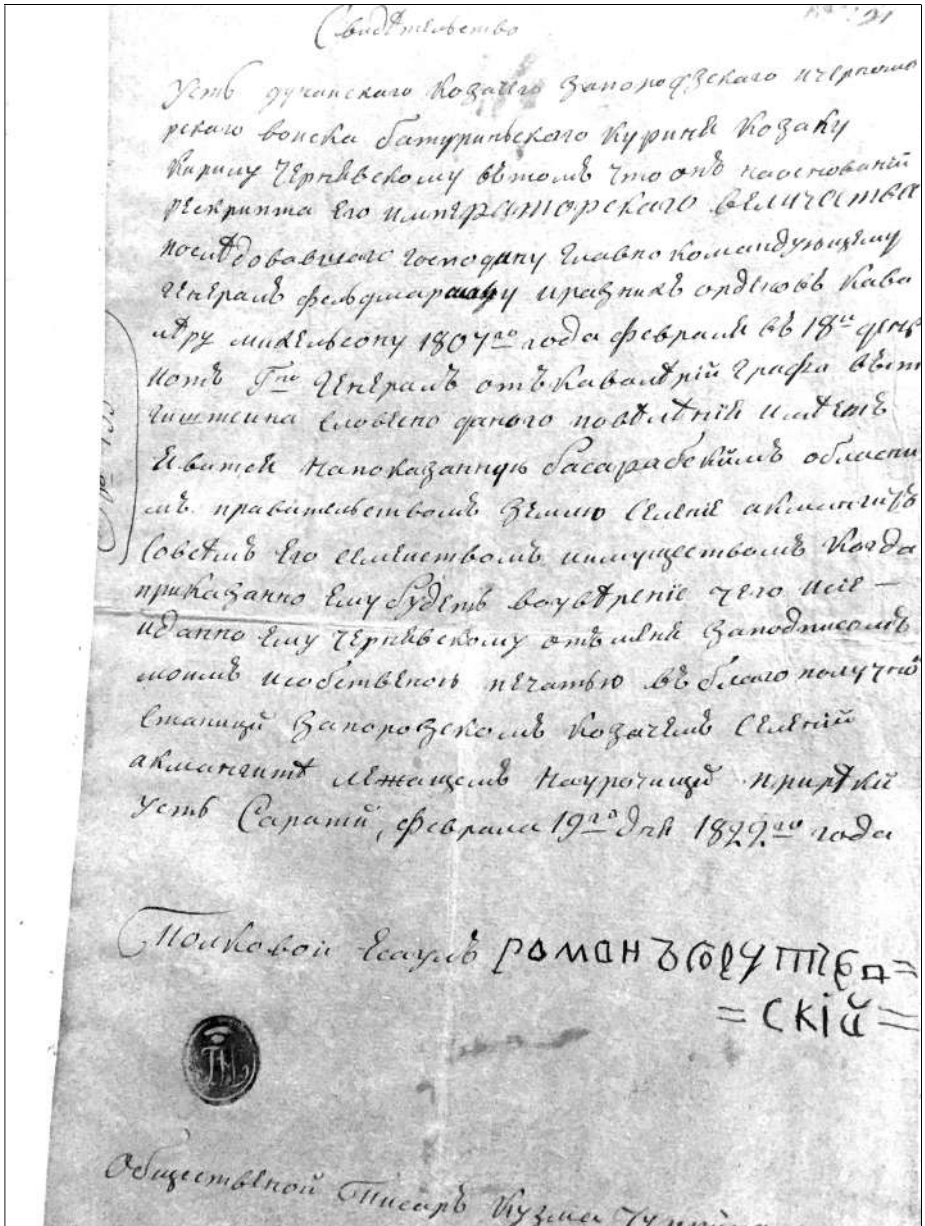 Свидѣтельство
Усть дунайскаго козачего запорозскаго ичерномо
рскаго воиска батуриньского куриня козаку
Кирилу Чернявскому вътомъ что онъ наоснованій
рескрипта Его императорскаго величества
послѣдовавшаго господину главнокомандующему
Генералъ фелдмаршалу иразнихъ орденовъ кава
лѣру михельсону 1807го года февраля въ 18й день
иотъ Гна Генералъ отъ кавалѣрій графа вѣт
гинштеина словѣсно даного повѣлѣній имѣетъ
явится напоказанную басарабскимъ областни
мъ правительствомъ землю селеніе акмангитъ
совсѣмъ его семеиствомъ иимуществомъ когда
приказанно ему будетъ воувѣреніе чего исіе —
иданно ему чернявскому отъ меня заподписомъ
моимъ исобственою печатью въ благополучной
станици запорозскомъ козачемъ селеній
акмангитѣ лежащемъ наурочищи прирѣки
усть Саратій, февраля 19го дня 1822го года
Полковои есаулъ романъ =
= скій =
Общественой Писарь Кузма